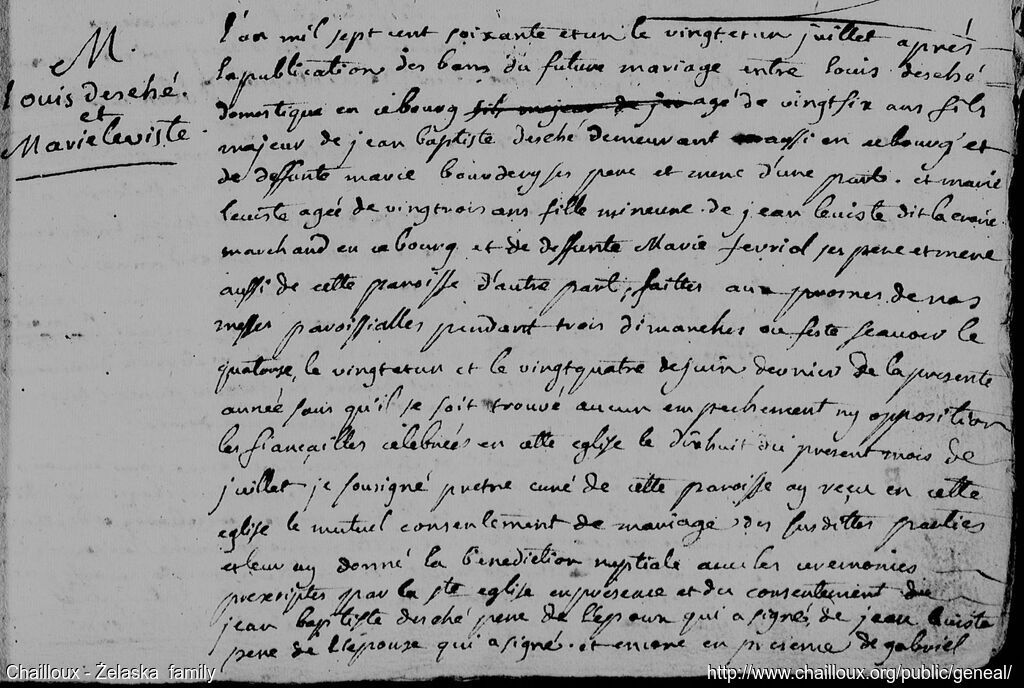 M.
Louis desché.
et
Marie leviste.
L'an mil sept cent soixante et un le vingt et un juillet après
la publication des bans du future mariage entre Louis desché
domestique en ce bourg fils majeur de jea agé de vingt six ans fils
majeur de jean baptiste desché demeurant aussi en ce bourg et
de deffunte marie bourdery ses pere et mere d'une part. et marie
leviste agée de vingt trois ans fille mineure de jean leviste dit
marchand en ce bourg et de deffunte Marie fevriol ses pere et mere
aussi de cette paroisse d'autre part, faittes aux prosnes de nos
messes paroissialles pendant trois dimanches ou feste scauoir le
quatorze, le vingt et un et le vingt quatre de juin dernier de la presente
année sans qu'il se soit trouvé aucun empechement ny opposition
les fiançailles célébrées en cette eglise le dixhuit du présent mois de
juillet je sousigné pretre curé de cette paroisse ay reçu en cette
eglise le mutuel consentement de mariage des susdittes parties
et leur ay donné la bénédiction nuptiale avec les ceremonies
prescriptes par la ste eglise en presence et du consentement de
jean baptiste desché pere de l'epoux qui a signés de jean leviste
pere de l'épouse qui a signé. et encore en presence de gabriel
Chailloux - Żelaska family
http://www.chailloux.org/public/geneal/